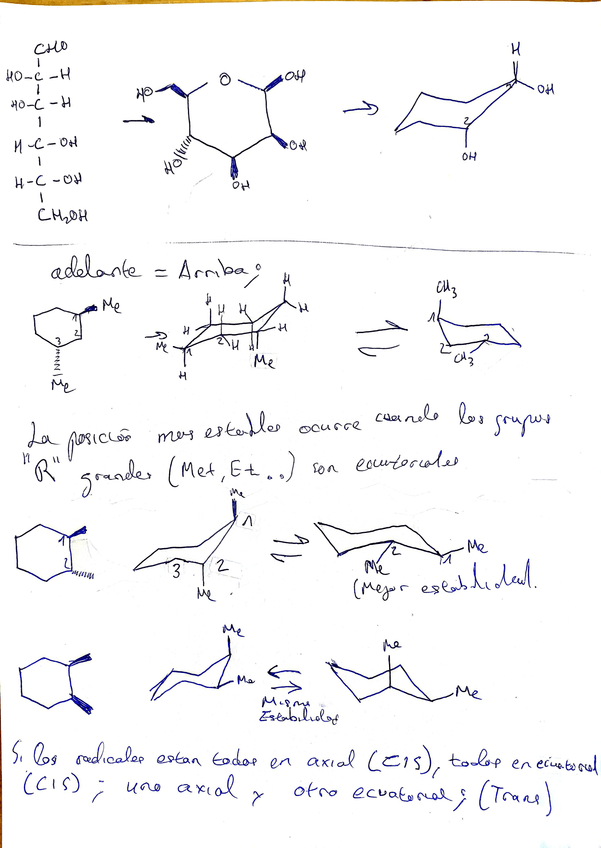 CHO
HO-C-H
HO-C-H
H-C-OH
H-C-OH
CH2OH
HO O OH
HO OH
OH
H
OH
2
OH
adelante = Arriba;
1 Me
2
3
Me
H H H H H H
Me 1 2 H H
H Me
CH3
1
2 3
CH3
La posición mas estables ocurre cuando los grupos
"R" grandes (Met, Et..) son ecuatoriales
1
2
Me
1
3 2
Me
2 Me
Me 1
(Mejor estabilidad.
Me
Me
Misma
Estabilidad
Me
Me
Si los radicales estan todos en axial (CIS), todos en ecuatorial
(CIS); uno axial y otro ecuatorial; (Trans)